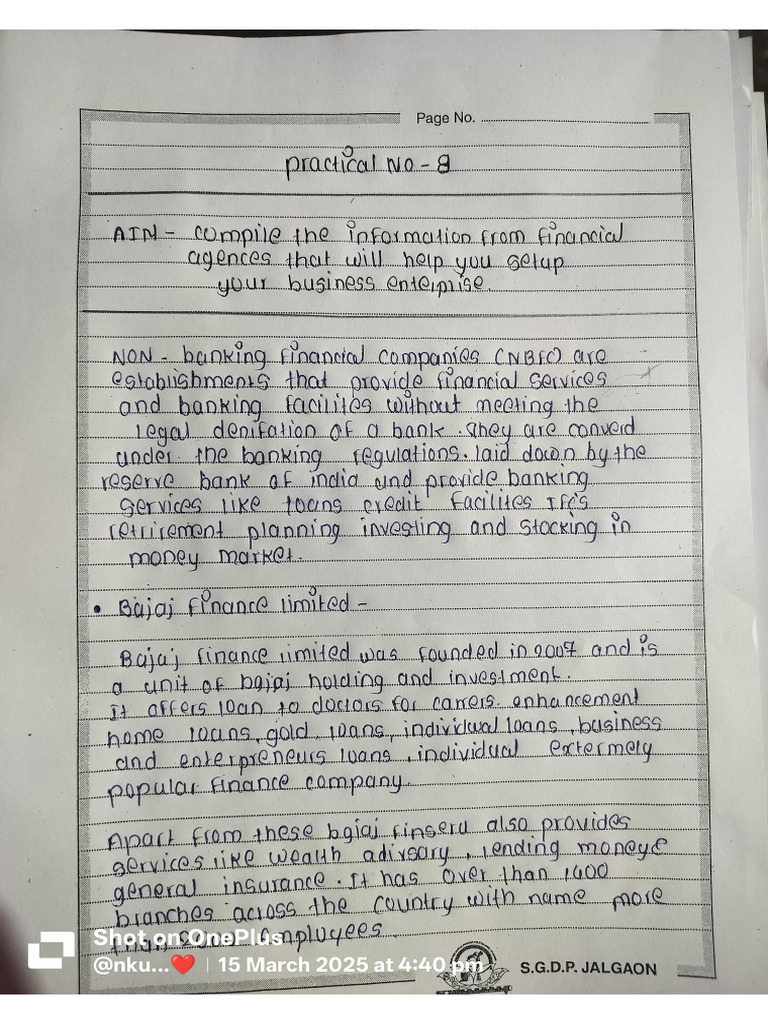 Page No.
practical NO - 8
AIM - compile the information from financial
agences that will help you setup
your business enterprise.
NON - banking financial companies (NBFC) are
establishments that provide financial services
and banking facilites without meeting the
legal denifation of a bank. They are converd
under the banking regulations. laid down by the
reserve bank of india and provide banking
services like loans credit facilites
retrirement planning investing and stocking in
money market.
• Bajaj finance limited -
Bajaj finance limited was founded in 2007 and is
a unit of bajaj holding and investment.
it offers loan to doctors for carrers enhancement
home loans, gold, loans, individual loans, business
and enterpreneurs loans, individual extermely
popular finance company.
Apart from these bajaj finseru also provides
services like wealth adivsary, lending money &
general insurance. It has over than 1400
branches across the country with name more
employees.
Shot on OnePlus
@nku...❤️ | 15 March 2025 at 4:40 pm
S.G.D.P. JALGAON